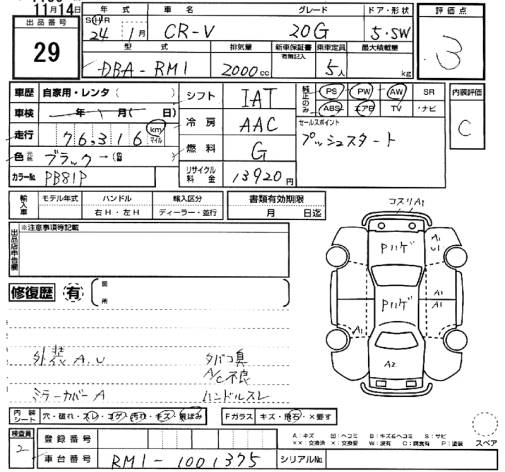 11月14日
出品番号
29
年式 車名 グレード ドア・形状
24年 1月 CR-V 20G 5・5W
型式 排気量 新車保証書 有無記入 乗車定員 最大積載量
DBA-RM1 2000cc 5人 kg
評価点
3
車歴 自家用・レンタ( )
車検 年 月( 日)
走行 76,316 km マイル
色 ブラック→(替
カラーNo PB81P
シフト IAT
冷房 AAC
燃料 G
リサイクル料金 13920円
純正のみ PS PW AW SR
ABS エアB TV ・ナビ
セールスポイント
プッシュスタート
内装評価
C
輸入車 モデル年式 ハンドル 右H・左H 輸入区分 ディーラー・並行
書類有効期限 月 日迄
出品店申告欄
※注意事項等記載
修復歴 有 箇所
外装A.U タバコ臭
A/C不良
ミラーカバーA ハンドルスレ
コスリA1
Pハゲ
A1
U1
Pハゲ
A1
A1
A1
A2
内装シート 穴・破れ・スレ・コゲ・汚れ・キズ・黄ばみ
Fガラス キズ・飛石・×要す
検査員 2
登録番号
車台番号 RM1-1001375
シリアルNo.
A:キズ U:ヘコミ B:キズ&ヘコミ S:サビ
××:交換済 ×:交換要 W:波有 C:腐食有 P:塗装
スペア